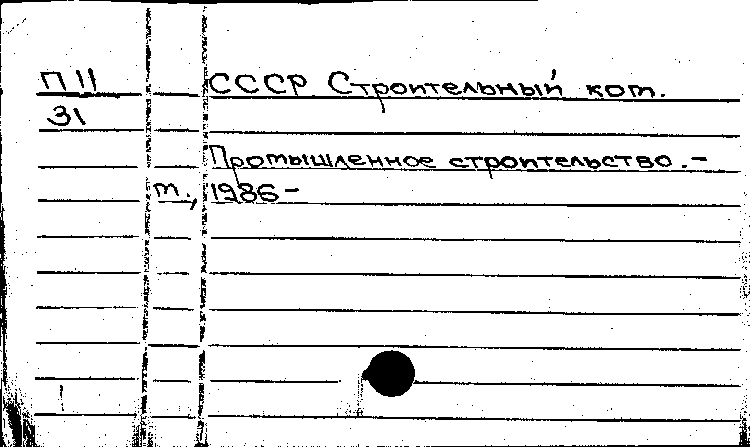 П 11 СССР Строительный кот.
31
Промышленное строительство. –
т., 1986 –